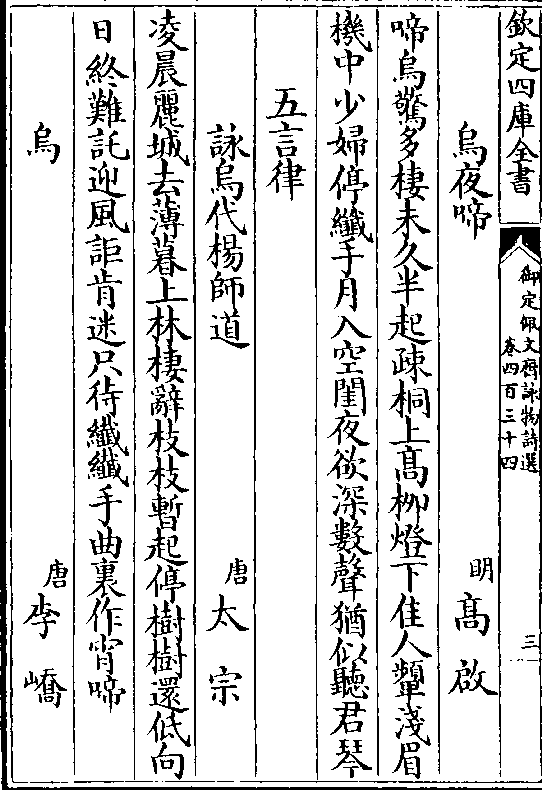 欽定四庫全書
御定佩文齋詠物詩選
卷四百三十四
三
烏夜啼
明
高啟
啼烏驚多棲未久半起疎桐上高柳燈下佳人顰淺眉
機中少婦停纖手月入空閨夜欲深數聲猶似聽君琴
五言律
詠烏代楊師道
唐
太宗
凌晨麗城去薄暮上林棲辭枝枝暫起停樹樹還低向
日終難託迎風詎肯迷只待纖纖手曲裏作宵啼
烏
唐
李嶠